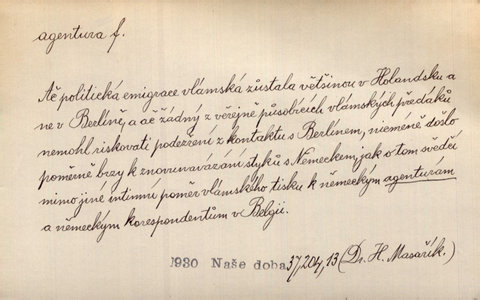 agentura f.
Ač politická emigrace vlámská zůstala většinou v Holandsku a
ne v Berlíně, a ač žádný z veřejně působících vlámských předáků
nemohl riskovati podezření z kontaktu s Berlínem, nicméně došlo
poměrně brzy k znovunavázaní styků s Německem, jak o tom svědčí
mimo jiné intimní poměr vlámského tisku k německým agenturám
a německým korespondentům v Belgii.
1930 Naše doba 37, 204, 13 (Dr. H. Masařík.)